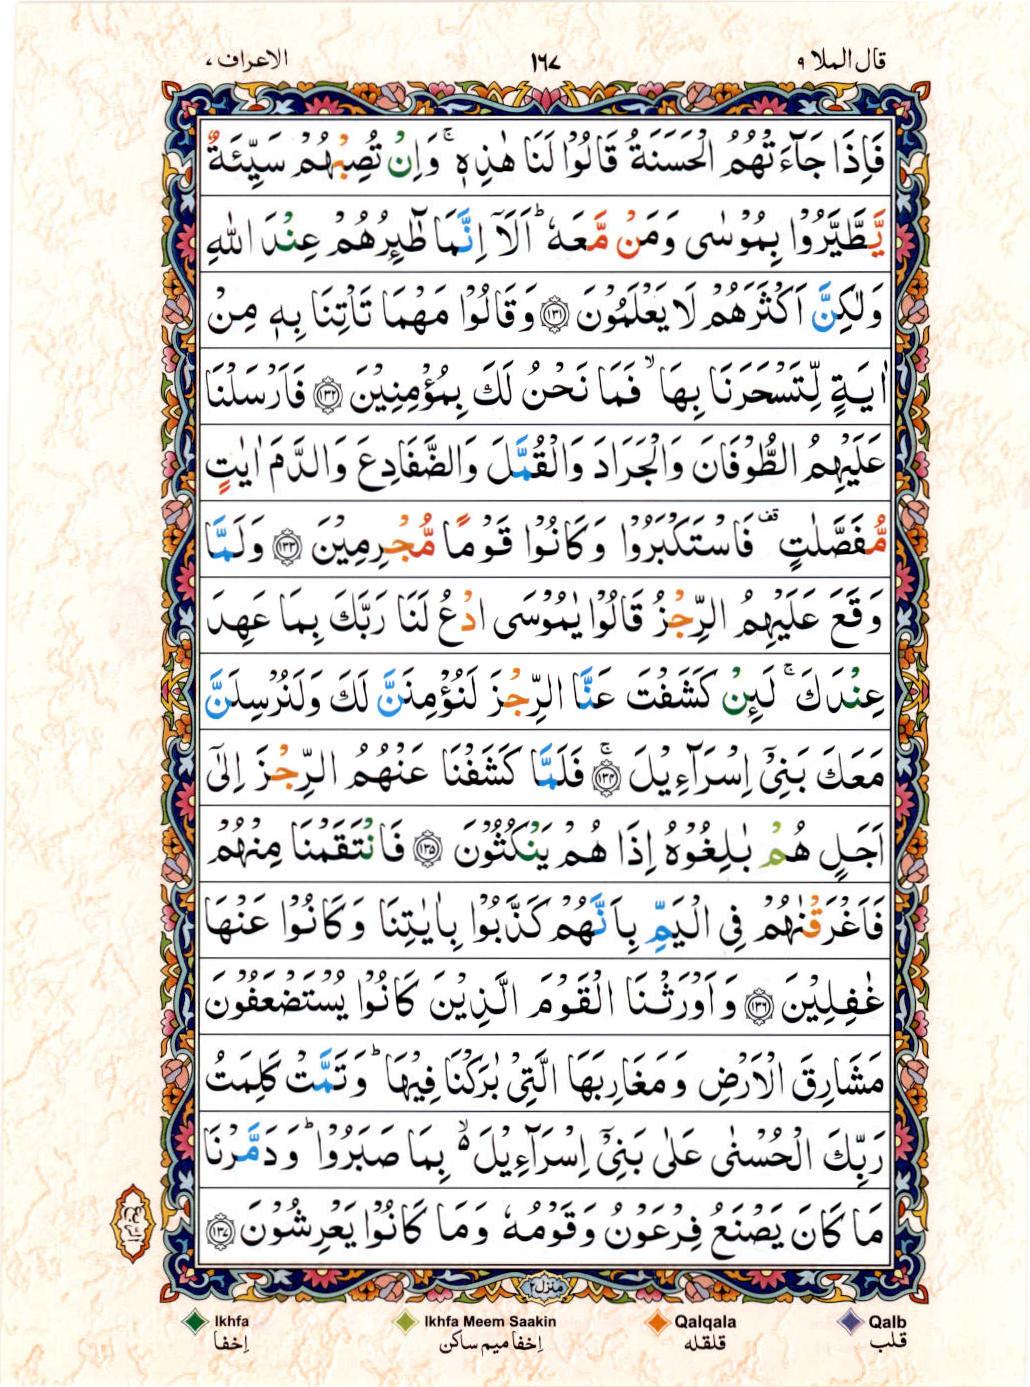 قال الملا ٩
١٦٧
الاعراف ٧
فَاِذَا جَآءَتْهُمُ الْحَسَنَةُ قَالُوْا لَنَا هٰذِهٖ ۚ وَاِنْ تُصِبْهُمْ سَيِّئَةٌ
يَّطَّيَّرُوْا بِمُوْسٰى وَمَنْ مَّعَهٗ ؕ اَلَاۤ اِنَّمَا طٰٓئِرُهُمْ عِنْدَ اللّٰهِ
وَلٰكِنَّ اَكْثَرَهُمْ لَا يَعْلَمُوْنَ ﴿۱۳۱﴾ وَقَالُوْا مَهْمَا تَاْتِنَا بِهٖ مِنْ
اٰيَةٍ لِّتَسْحَرَنَا بِهَا ۙ فَمَا نَحْنُ لَكَ بِمُؤْمِنِيْنَ ﴿۱۳۲﴾ فَاَرْسَلْنَا
عَلَيْهِمُ الطُّوْفَانَ وَالْجَرَادَ وَالْقُمَّلَ وَالضَّفَادِعَ وَالدَّمَ اٰيٰتٍ
مُّفَصَّلٰتٍ ۟قف فَاسْتَكْبَرُوْا وَكَانُوْا قَوْمًا مُّجْرِمِيْنَ ﴿۱۳۳﴾ وَلَمَّا
وَقَعَ عَلَيْهِمُ الرِّجْزُ قَالُوْا يٰمُوْسَى ادْعُ لَنَا رَبَّكَ بِمَا عَهِدَ
عِنْدَكَ ۚ لَئِنْ كَشَفْتَ عَنَّا الرِّجْزَ لَنُؤْمِنَنَّ لَكَ وَلَنُرْسِلَنَّ
مَعَكَ بَنِىْۤ اِسْرَآءِيْلَ ﴿۱۳۴﴾ۚ فَلَمَّا كَشَفْنَا عَنْهُمُ الرِّجْزَ اِلٰٓى
اَجَلٍ هُمْ بٰلِغُوْهُ اِذَا هُمْ يَنْكُثُوْنَ ﴿۱۳۵﴾ فَانْتَقَمْنَا مِنْهُمْ
فَاَغْرَقْنٰهُمْ فِى الْيَمِّ بِاَنَّهُمْ كَذَّبُوْا بِاٰيٰتِنَا وَكَانُوْا عَنْهَا
غٰفِلِيْنَ ﴿۱۳۶﴾ وَاَوْرَثْنَا الْقَوْمَ الَّذِيْنَ كَانُوْا يُسْتَضْعَفُوْنَ
مَشَارِقَ الْاَرْضِ وَمَغَارِبَهَا الَّتِىْ بٰرَكْنَا فِيْهَا ؕ وَتَمَّتْ كَلِمَتُ
رَبِّكَ الْحُسْنٰى عَلٰى بَنِىْۤ اِسْرَآءِيْلَ ۬ۙ بِمَا صَبَرُوْا ؕ وَدَمَّرْنَا
مَا كَانَ يَصْنَعُ فِرْعَوْنُ وَقَوْمُهٗ وَمَا كَانُوْا يَعْرِشُوْنَ ﴿۱۳۷﴾
منزل ٢
Ikhfa
اِخفا
Ikhfa Meem Saakin
اِخفا میم ساکن
Qalqala
قلقله
Qalb
قلب